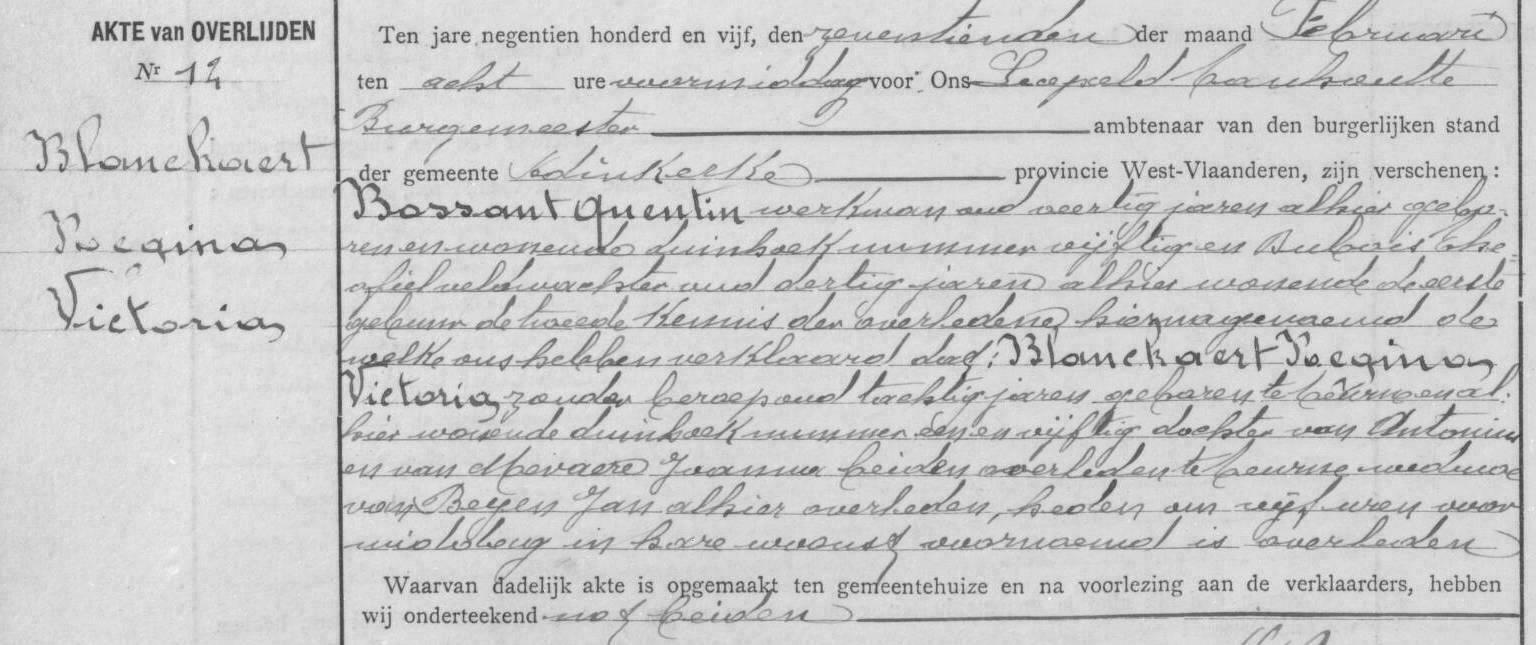 AKTE van OVERLIJDEN
Nr 12
Blanckaert
Regina
Victoria
Ten jare negentien honderd en vijf, den zevenstienden der maand Februari
ten acht ure voormiddag voor Ons Leopold
Burgemeester ambtenaar van den burgerlijken stand
der gemeente Adinkerke provincie West-Vlaanderen, zijn verschenen :
Bossant Quentin werkman oud veertig jaren alhier gebo-
ren en wonende duinhoek nummer vijftig en Dubois The-
ofiel veldwachter oud dertig jaren alhier wonende de eerste
gebuur de tweede kennis der overledene hiernagenoemd de
welke ons hebben verklaard dat: Blanckaert Regina
Victoria, zonder beroep oud tachtig jaren geboren te Veurne en al-
hier wonende duinhoek nummer een en vijftig dochter van Antonius
en van Joanna beiden overleden te Veurne weduwe
van Beyen Jan alhier overleden, heden om vijf uren voor
middag in hare woonst voornoemd is overleden
Waarvan dadelijk akte is opgemaakt ten gemeentehuize en na voorlezing aan de verklaarders, hebben
wij onderteekend met beiden